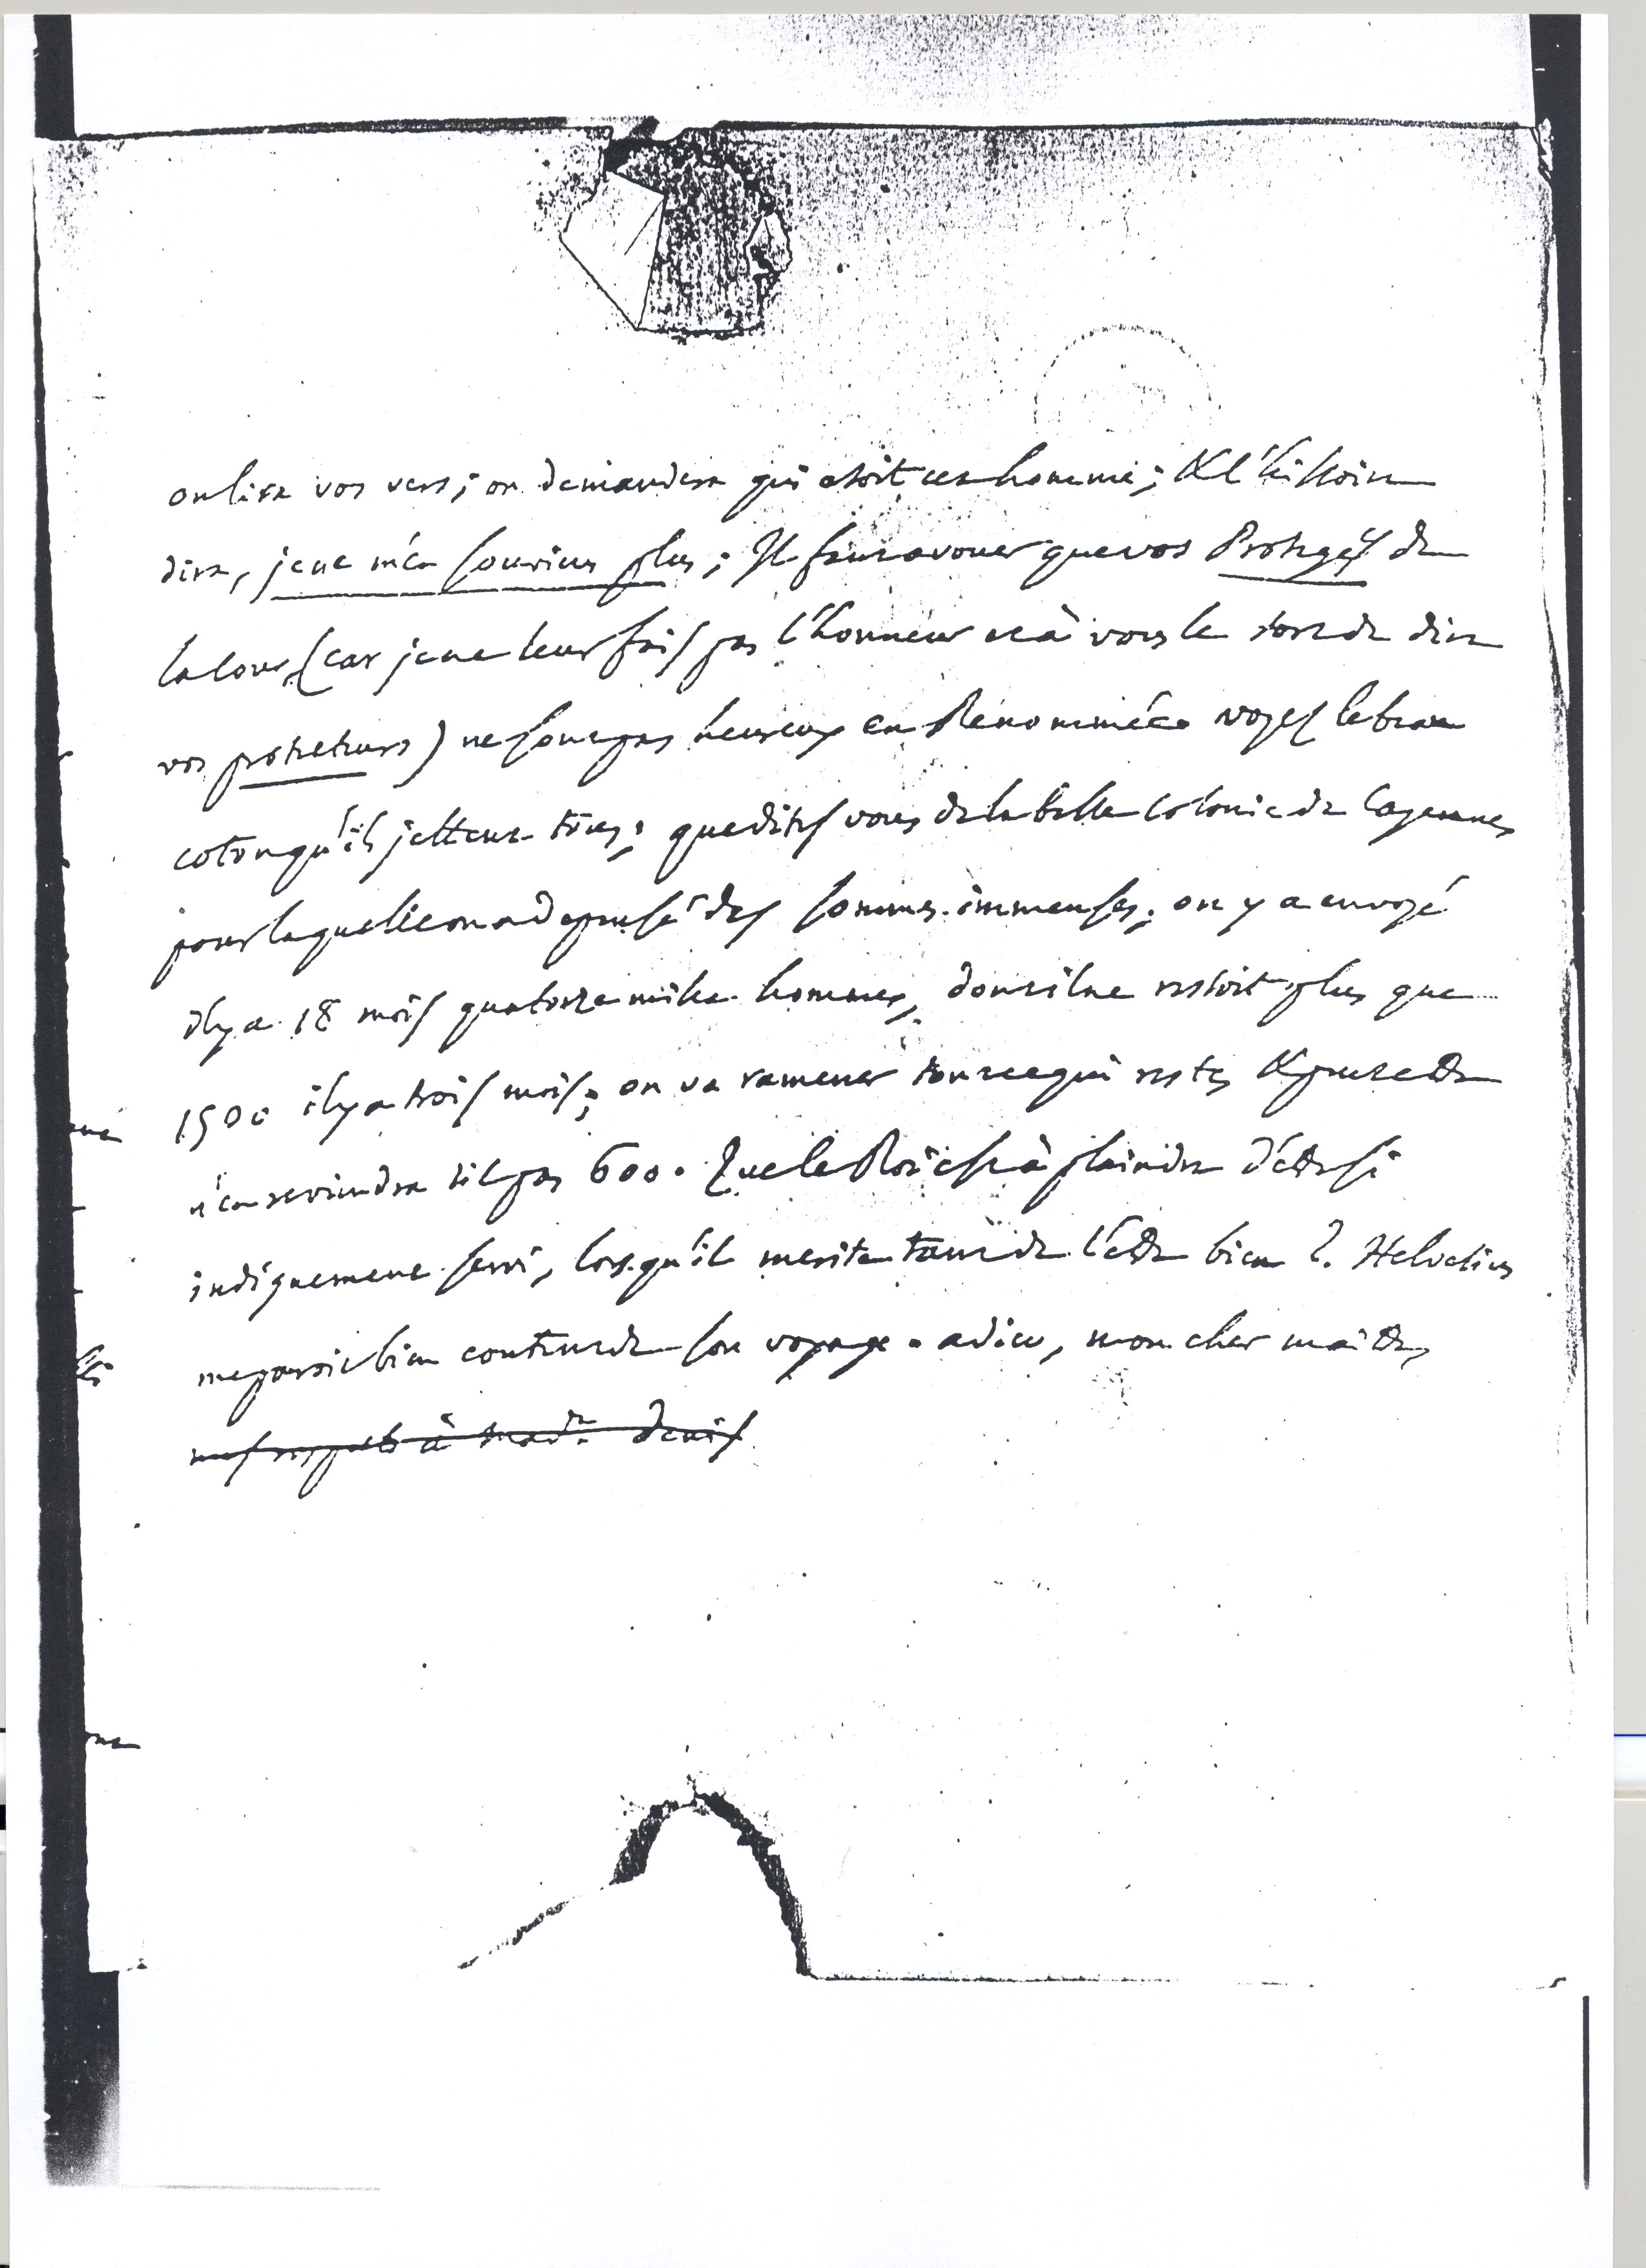 on lira vos vers; on demandera qui etoit cet homme; & l'histoire
dira, je ne m'en souviens plus; Il faut avouer que vos Protegés de
la cour, (car je ne leur fais pas l'honneur ni à vous le tort de dire
vos protecteurs) ne sont pas heureux en Renommée. voyez le beau
coton qu'ils jettent tous; que dites vous de la belle colonie de Cayenne,
pour laquelle on a depensé des sommes immenses; on y a envoyé
il y a 18 mois quatorze mille hommes, dont il ne restoit plus que
1500 il y a trois mois; on va ramener tout ce qui reste, & peut etre
n'en reviendra til pas 600. Que le Roi est à plaindre d'etre si
indignement servi, lors qu'il merite tant de l'etre bien ?. Helvetius
me paroit bien content de son voyage. adieu, mon cher maitre,
mes respects à mad.e Denis